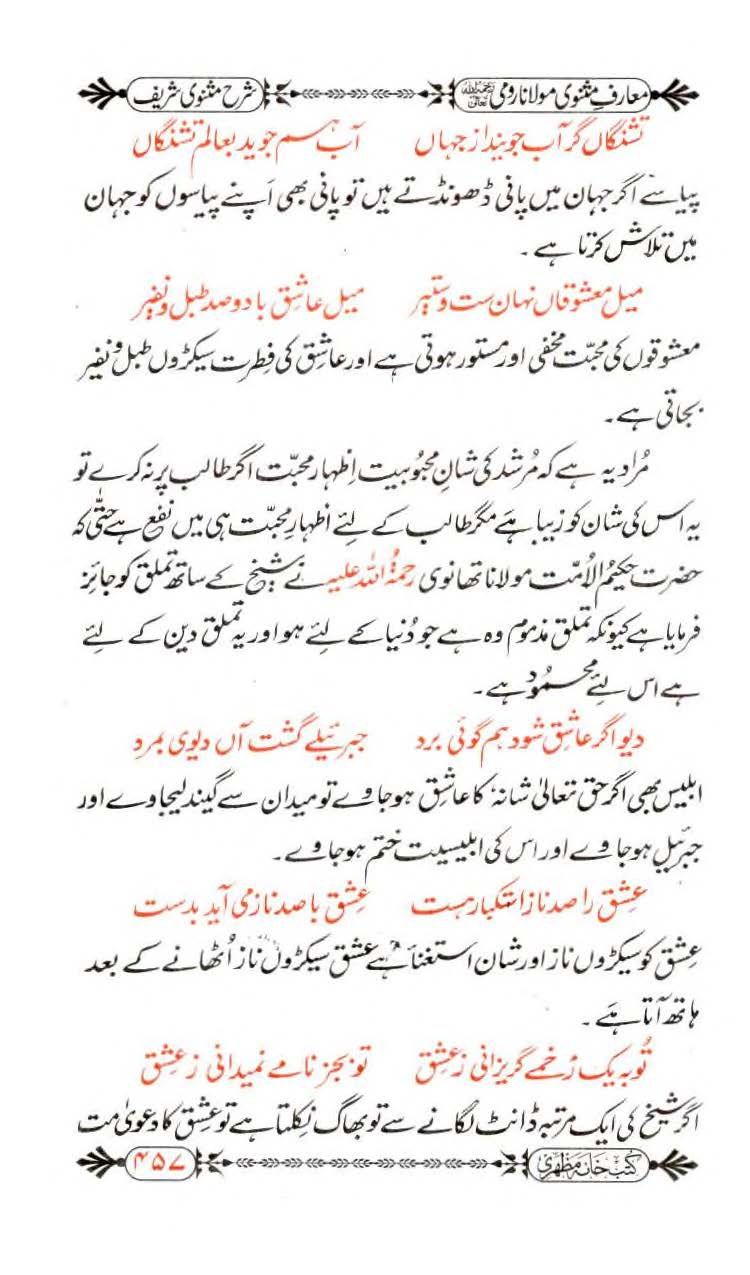 معارفِ مثنوی مولانا رومی رحمۃ اللہ تعالیٰ شرح مثنوی شریف
تشنگاں گر آب جویند از جہاں آب ہم جوید بعالم تشنگاں
پیاسے اگر جہان میں پانی ڈھونڈتے ہیں تو پانی بھی اَپنے پیاسوں کو جہان
میں تلاش کرتا ہے۔
میل معشوقاں نہان ست وستیر میل عاشِق با دو صد طبل و نفیر
معشوقوں کی محبّت مخفی اور مستور ہوتی ہے اور عاشِق کی فِطرت سیکڑوں طبل و نفیر
بجاتی ہے۔
مُراد یہ ہے کہ مُرشد کی شانِ محبُوبیت اِظہارِ محبّت اگر طالب پر نہ کرے تو
یہ اس کی شان کو زیبا ہَے مگر طالب کے لئے اظہارِ محبّت ہی میں نفع ہے حتّٰی کہ
حضرت حکیمُ الاُمّت مولانا تھانوی رحمۃُ اللہ علیہ نے شیخ کے ساتھ تملق کو جائز
فرمایا ہے کیونکہ تملق مذموم وہ ہے جو دُنیا کے لئے ہو اور یہ تملق دین کے لئے
ہے اس لئے محمُود ہے۔
دیو اگر عاشِق شود ہم گوئی برد جبرئیلے گشت آں دیوی بمرد
ابلیس بھی اگر حق تعالیٰ شانہٗ کا عاشِق ہو جاوے تو میدان سے گیند لیجاوے اور
جبرئیل ہو جاوے اور اس کی ابلیسیت ختم ہو جاوے۔
عِشق را صد ناز استکبار ہست عِشق با صد ناز می آید بدست
عِشق کو سیکڑوں ناز اور شان استغنأ ہے عشق سیکڑوں ناز اُٹھانے کے بعد
ہاتھ آتا ہَے۔
تُو بہ یک زخمے گریزانی زعشق تو بجز نامے نمیدانی ز عشِق
اگر شیخ کی ایک مرتبہ ڈانٹ لگانے سے تو بھاگ نِکلتا ہے تو عِشق کا دعویٰ مت
کتب خانہ مظہری ۴۵۷